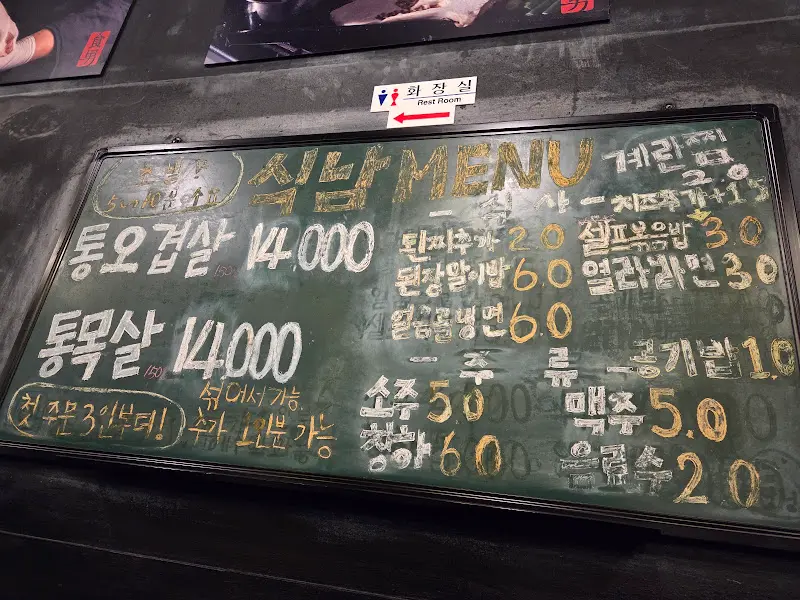 화장실
Rest Room
식남 MENU
계란찜
3.0
- 식 사 -
치즈추가+1.5
통오겹살 150 14.000
된찌추가 2.0
셀프볶음밥 3.0
된장말이밥 6.0
열라라면 3.0
얼음골냉면 6.0
통목살 150 14.000
- 주 류 -
공기밥 1.0
첫 주문 3인부터!
섞어서 가능
추가 1인분 가능
소주 5.0
맥주 5.0
청하 6.0
음료수 2.0